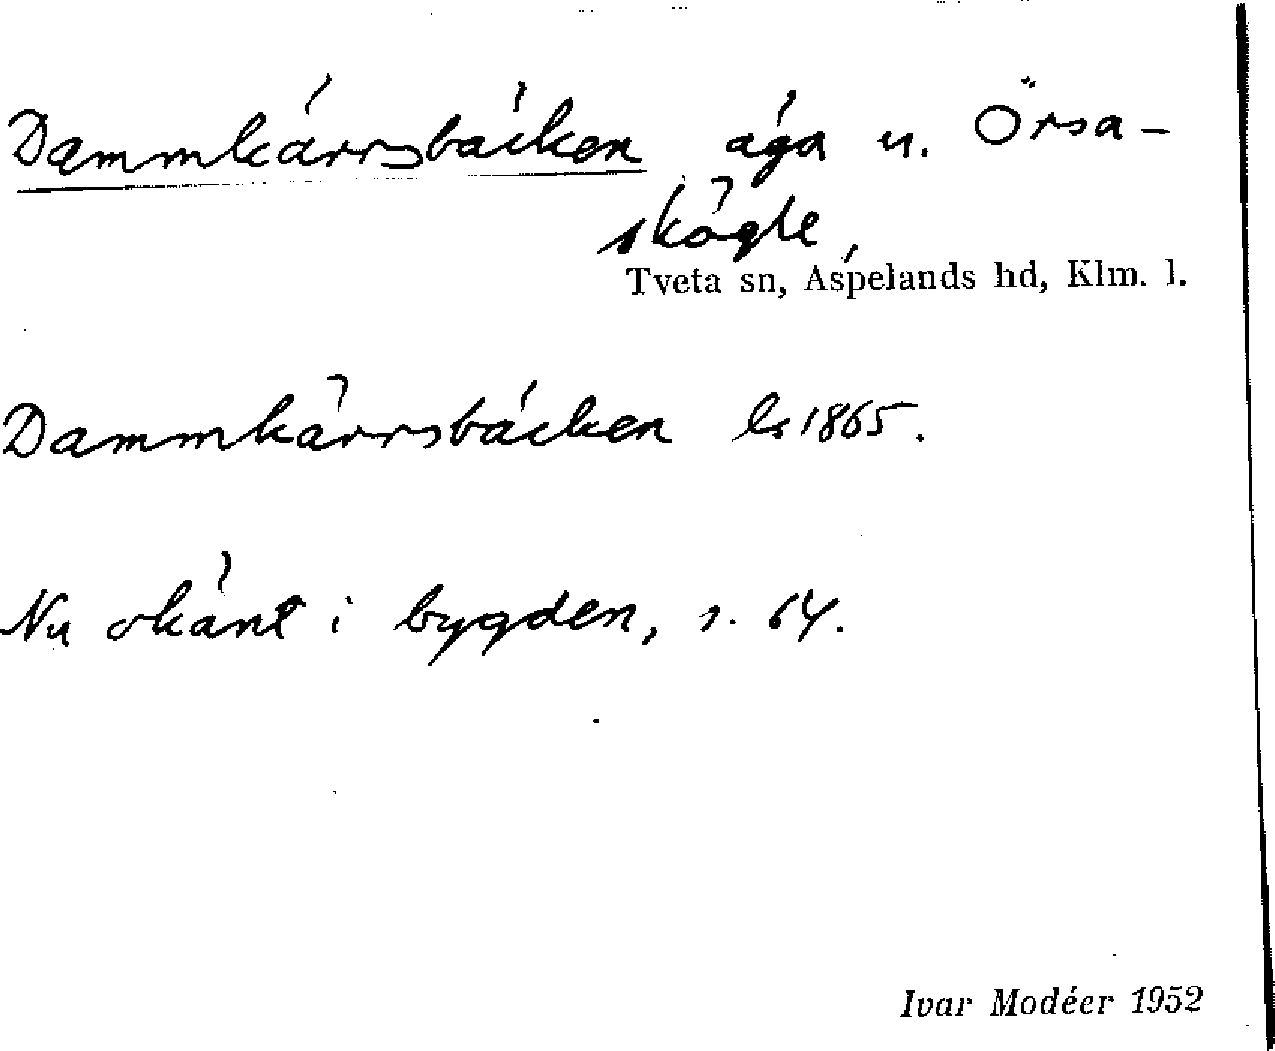 Dammkärrsbäcken äga u. Örsa-
skögle,
Tveta sn, Aspelands hd, Klm. l.
Dammkärrsbäcken ls 1865.
Nu okänt i bygden, s. 64.
Ivar Modéer 1952